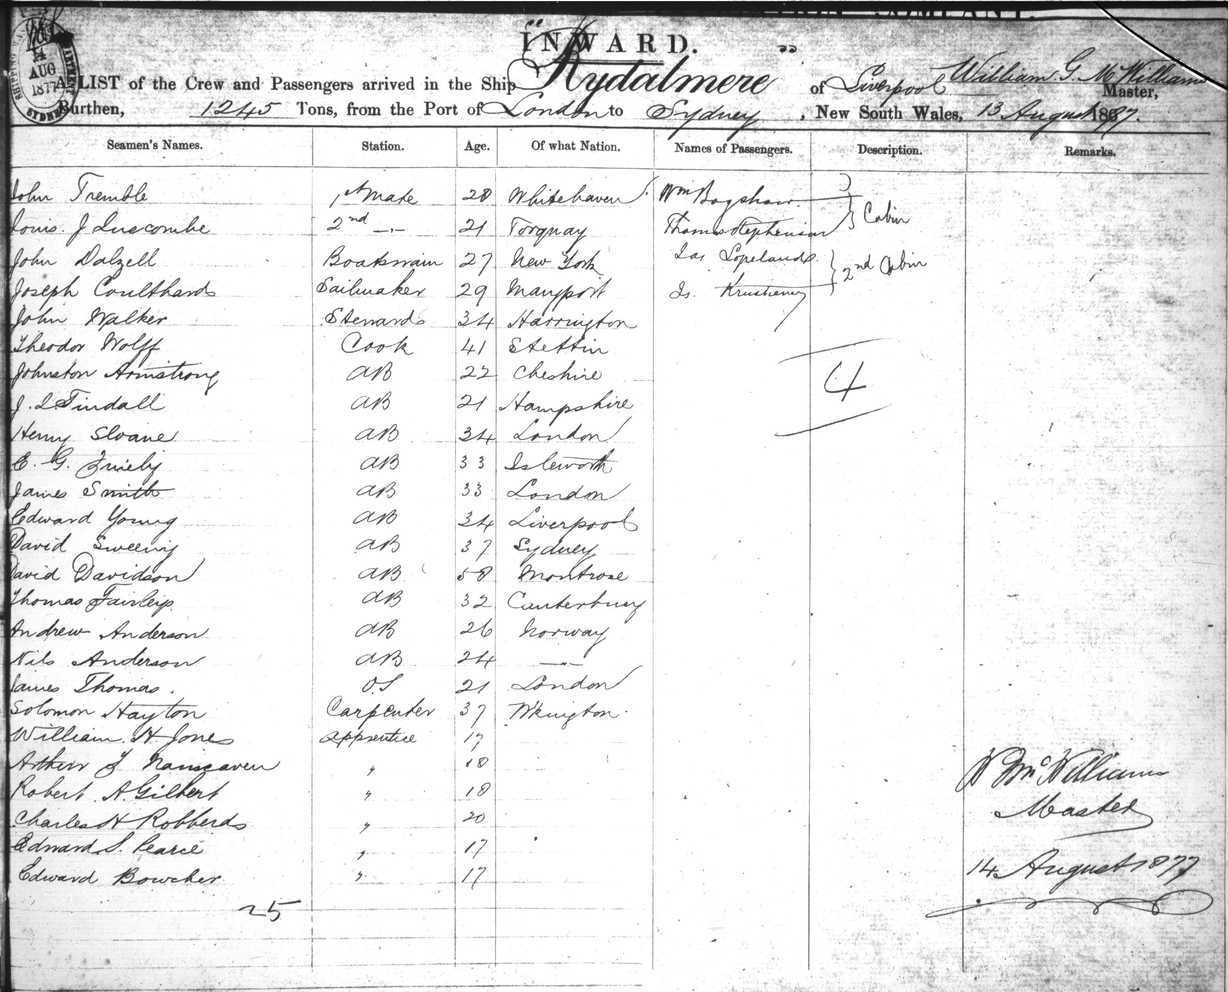 INWARD.
14
AUG
1877
SYDNEY
A LIST of the Crew and Passengers arrived in the Ship Rydalmere of Liverpool William G. McWilliams Master,
Burthen, 1245 Tons, from the Port of London to Sydney, New South Wales, 13 August 1877.
Seamen's Names. Station. Age. Of what Nation. Names of Passengers. Description. Remarks.
John Tremble 1st Mate 28 Whitehaven Wm Bagshaw
Louis. J Luscombe 2nd -„- 21 Torquay Thomas Stephenson Cabin
John Dalzell Boatswain 27 New York Jas Copeland 2nd Cabin
Joseph Coulthard Sailmaker 29 Maryport Js.
John Walker Steward 34 Harrington
Theodor Wolff Cook 41 Stettin
Johnston Armstrong AB 22 Cheshire 4
J. Tindall AB 21 Hampshire
Henry Sloane AB 34 London
E. G. AB 33 Isleworth
James Smith AB 33 London
Edward Young AB 34 Liverpool
David Sweeny AB 37 Sydney
David Davidson AB 58 Montrose
Thomas AB 32 Canterbury
Andrew Anderson AB 26 Norway
Nils Anderson AB 24 -„-
James Thomas. OS 21 London
Solomon Hayton Carpenter 37 Wkington
William. H. Jones Apprentice 17
Arthur 〃 18
Robert. A. Gilbert 〃 18
Charles H Robberds 〃 20
Edward S. Pearce 〃 17
Edward Bowcher 〃 17
25
W McWilliams
Master
14 August 1877